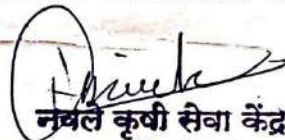 नवले कृषी सेवा केंद्र